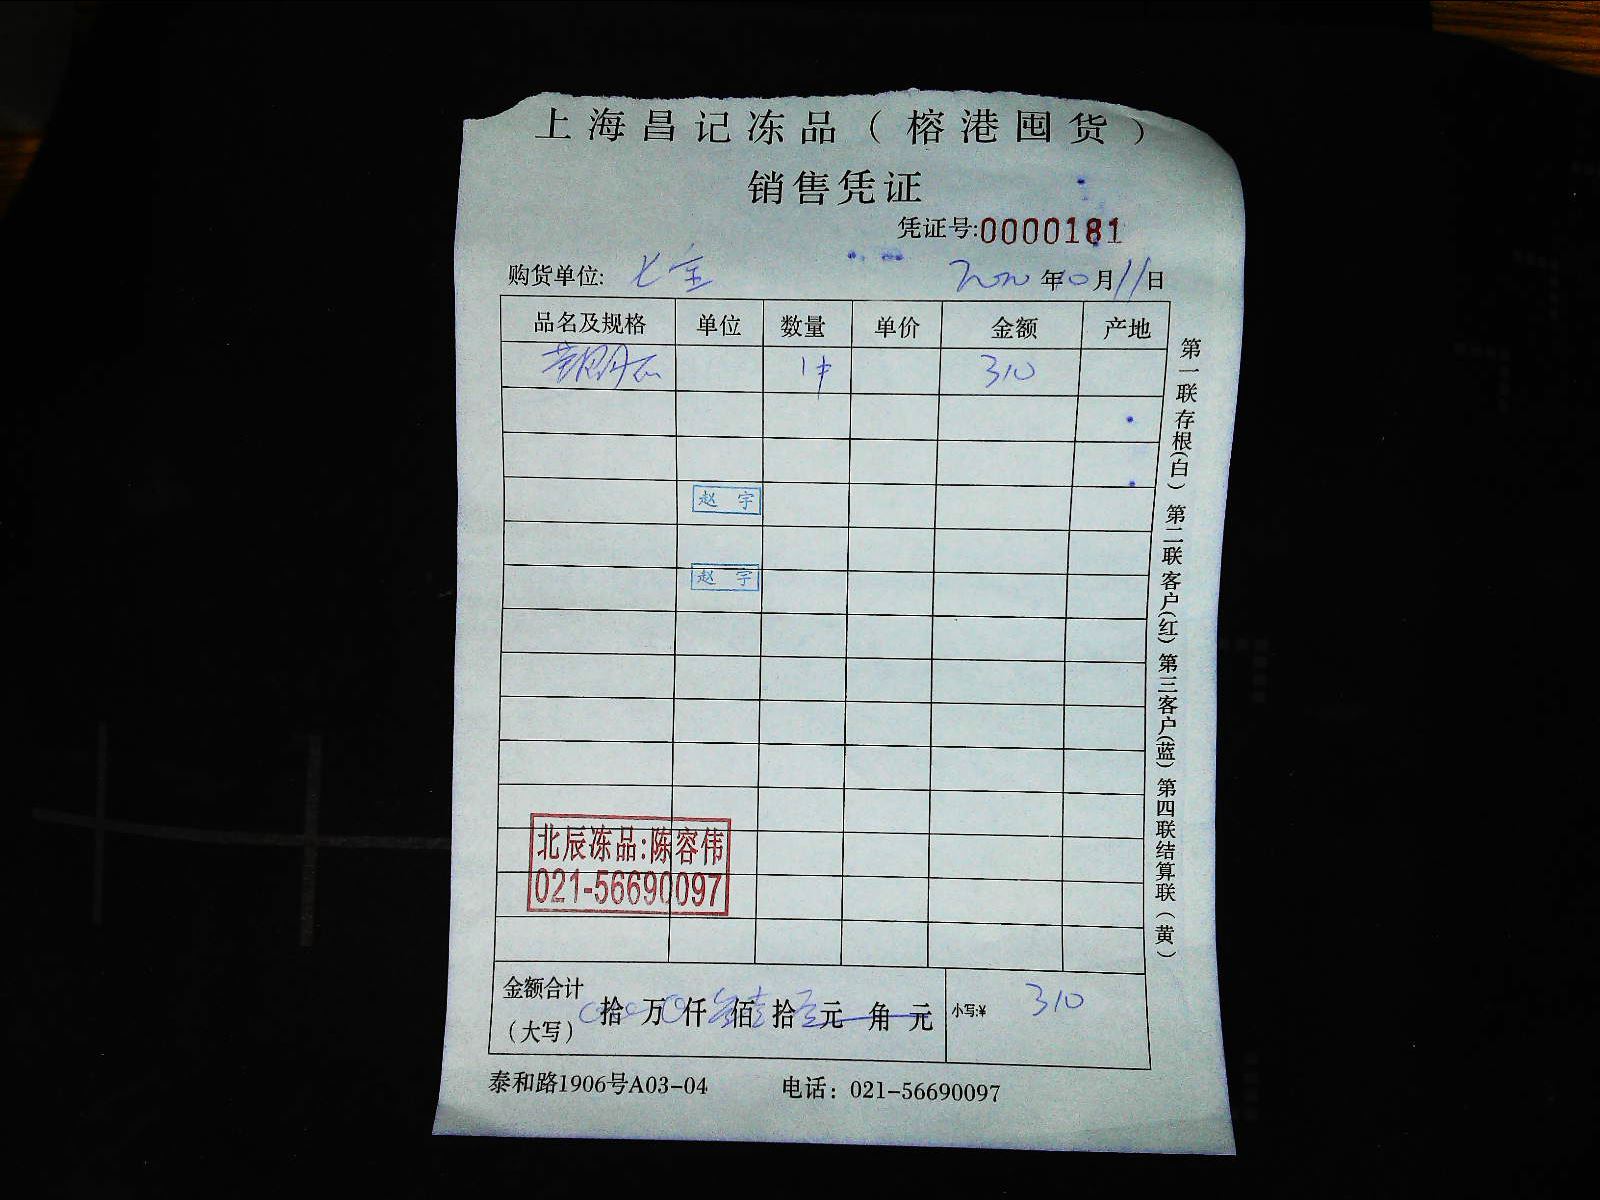 上海昌记冻品（榕港囤货）
销售凭证
凭证号:0000181
购货单位: 七宝 2020年10月11日
品名及规格 单位 数量 单价 金额 产地
1件 310
赵 宇
赵 宇
北辰冻品:陈容伟
021-56690097
金额合计（大写） 拾 万 仟 叁佰壹拾 元 角 元 小写:¥ 310
泰和路1906号A03-04 电话：021-56690097
第一联存根(白) 第二联客户(红) 第三客户(蓝) 第四联结算联(黄)